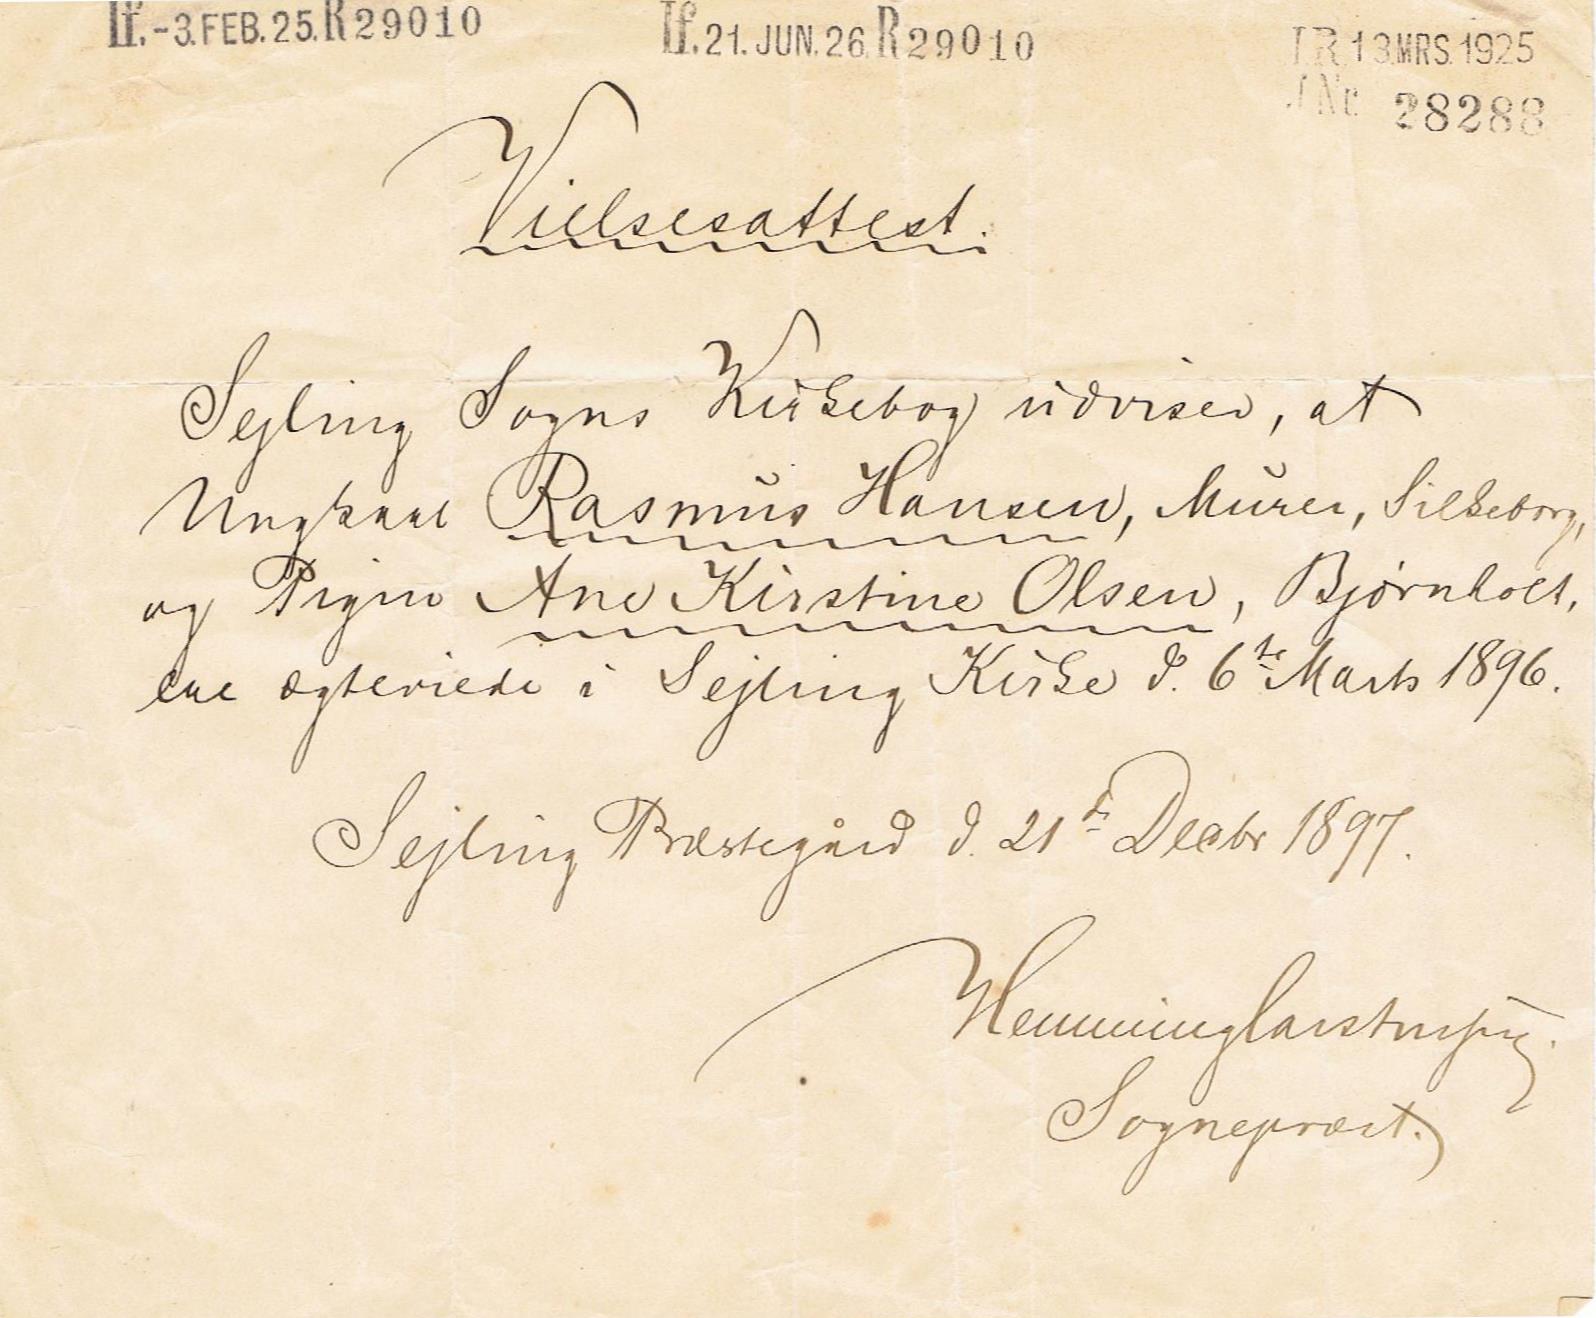 If. -3. FEB. 25. R 29010
If. 21. JUN. 26. R 29010
I R 13. MRS. 1925
J Nr 28288
Vielsesattest.
Sejling Sogns Kirkebog udviser, at
Ungkarl Rasmus Hansen, Murer, Silkeborg,
og Pigen Ane Kirstine Olsen, Bjørnholt,
ere ægteviede i Sejling Kirke d. 6te Marts 1896.
Sejling Præstegård d. 21de Decbr 1897.
Hemming
Sognepræst.